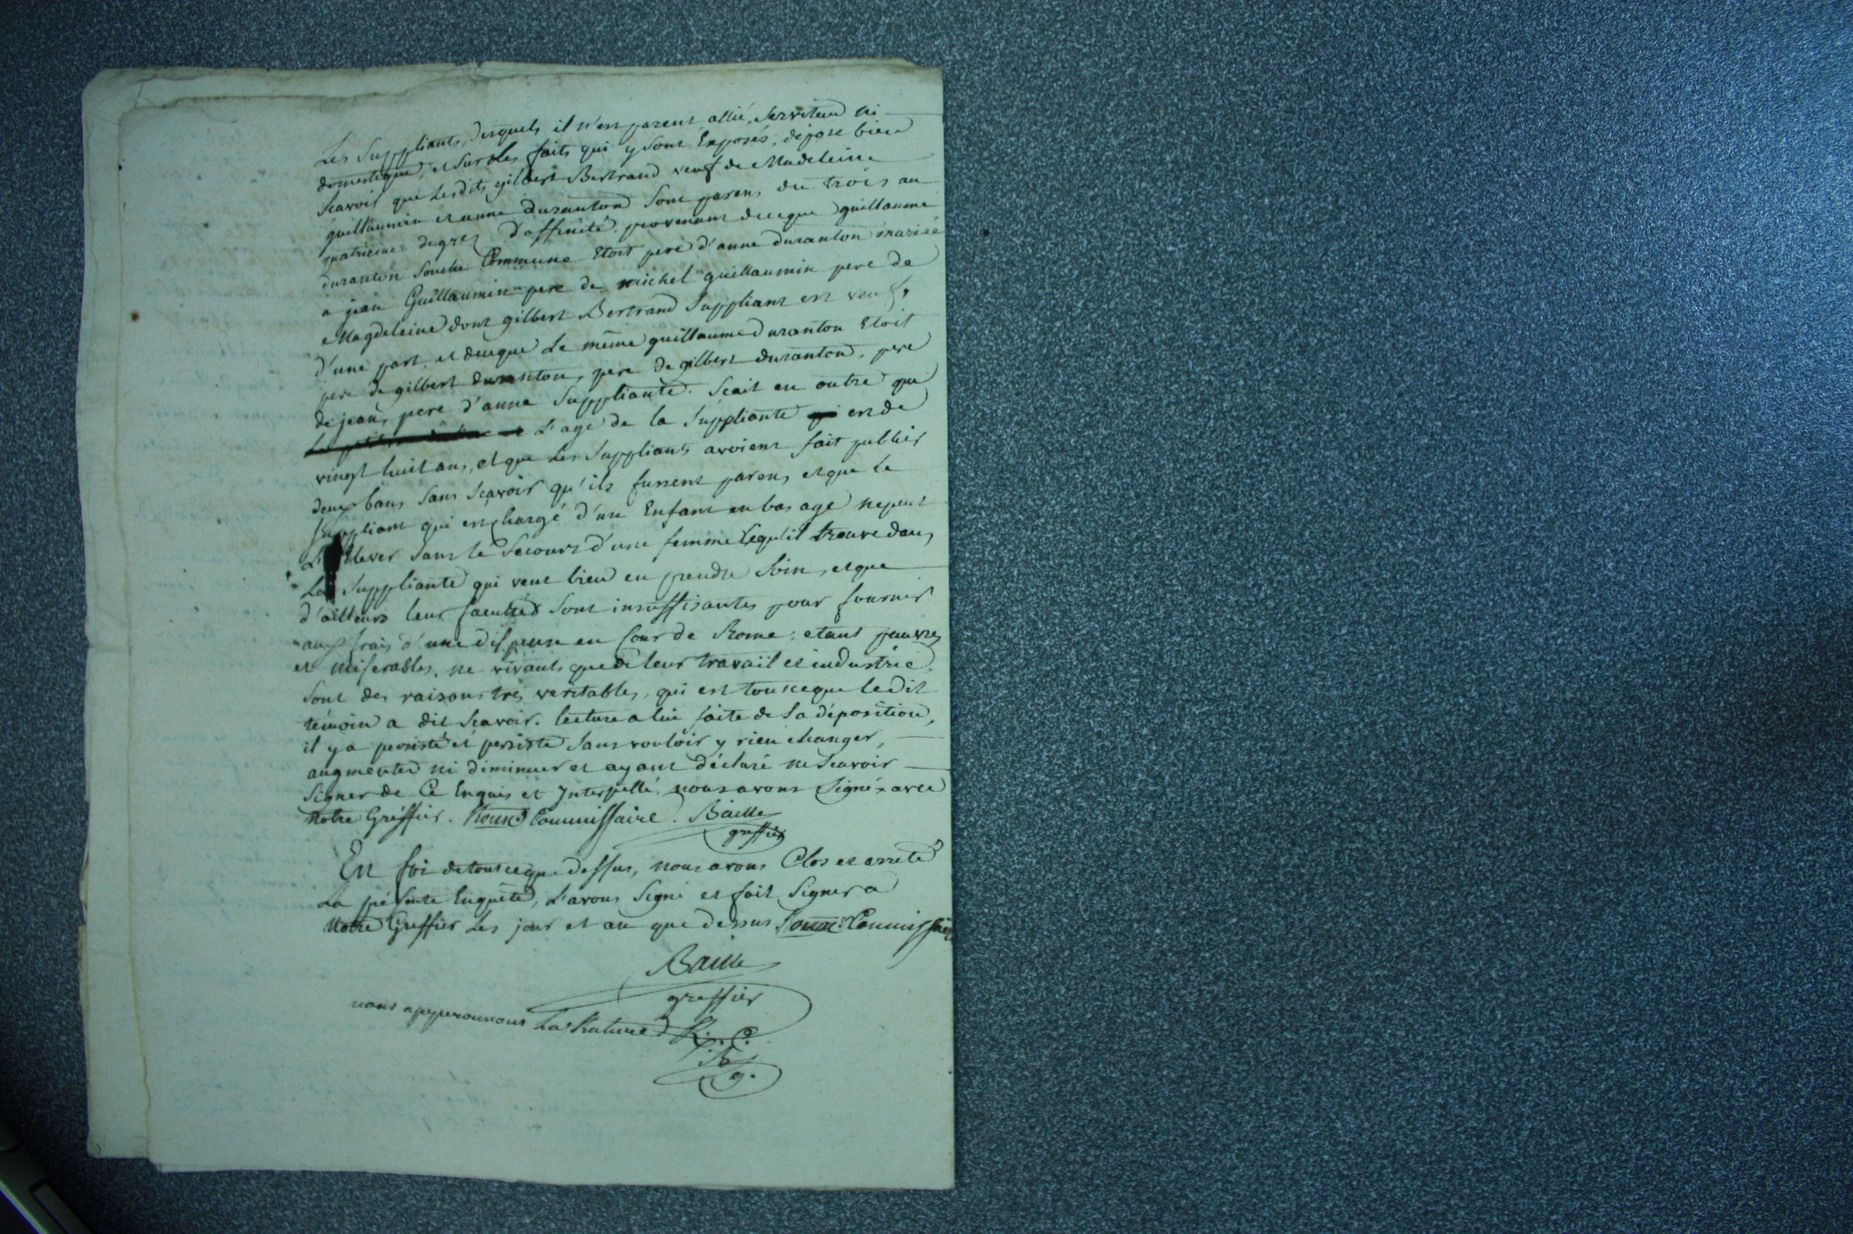 Les Suppliants, desquels il n'est parent, allié, serviteur ni
domestique, et sur les faits qui y sont Exposés, dépose bien
Scavoir que lesdits gilbert Bertrand veuf de Madeleine
guillaumin et anne duranton sont parens du trois au
quatrieme degrez d'affinité, provenant de ceque guillaume
duranton souche Commune Etoit pere d'anne duranton mariée
a jean Guillaumin pere de michel guillaumin pere de
Magdeleine dont gilbert Bertrand Suppliant est veuf,
d'une part, et deceque le même guillaume duranton Etoit
pere de gilbert duranton, pere de gilbert duranton, pere
de jean, pere d'anne Suppliante. Scait en outre que
L'age de la Suppliante est de
vingt huit ans, et que les Suppliants avoient fait publier
deux bans sans Scavoir qu'ils fussent parens, et que le
Suppliant qui est chargé d'un Enfant en bas age ne peut
L'Elever sans le Secours d'une femme lequ'il trouve dans
La Suppliante qui veut bien en prendre Soin, et que
d'ailleurs leur facultés sont insuffisantes pour fournir
aux frais d'une dispense en Cour de Rome; etant pauvres
et miserables, ne vivants que de leur travail et industrie.
sont des raisons très veritables, qui est tout ce que ledit
témoin a dit Scavoir. lecture a lui faite de sa déposition,
il y a persisté et persiste sans vouloir y rien changer,
augmenter ni diminuer et ayant déclaré ne Scavoir
Signer de Ce Enquis et Interpellé, nous avons Signé avec
notre Greffier. Commissaire. Baille
greffier
En foi de tout ce que dessus, nous avons Clos et arreté
La présente Enquête, L'avons Signé et fait Signer a
Notre Greffier les jour et an que dessus Commissaire
Baille
greffier
nous approuvons La Rature